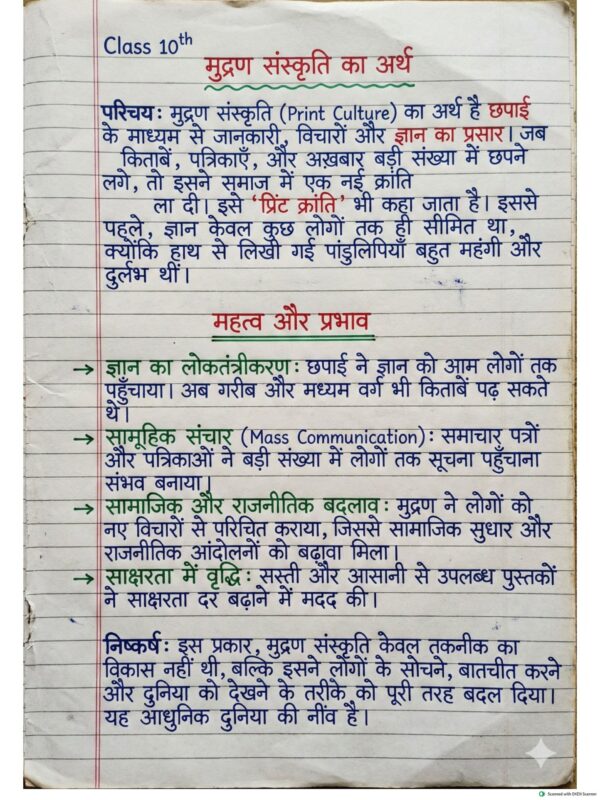 Class 10th
मुद्रण संस्कृति का अर्थ
परिचय: मुद्रण संस्कृति (Print Culture) का अर्थ है छपाई
के माध्यम से जानकारी, विचारों और ज्ञान का प्रसार। जब
किताबें, पत्रिकाएँ, और अख़बार बड़ी संख्या में छपने
लगे, तो इसने समाज में एक नई क्रांति
ला दी। इसे 'प्रिंट क्रांति' भी कहा जाता है। इससे
पहले, ज्ञान केवल कुछ लोगों तक ही सीमित था,
क्योंकि हाथ से लिखी गई पांडुलिपियाँ बहुत महंगी और
दुर्लभ थीं।
महत्व और प्रभाव
→ ज्ञान का लोकतंत्रीकरण: छपाई ने ज्ञान को आम लोगों तक
पहुँचाया। अब गरीब और मध्यम वर्ग भी किताबें पढ़ सकते
थे।
→ सामूहिक संचार (Mass Communication): समाचार पत्रों
और पत्रिकाओं ने बड़ी संख्या में लोगों तक सूचना पहुँचाना
संभव बनाया।
→ सामाजिक और राजनीतिक बदलाव: मुद्रण ने लोगों को
नए विचारों से परिचित कराया, जिससे सामाजिक सुधार और
राजनीतिक आंदोलनों को बढ़ावा मिला।
→ साक्षरता में वृद्धि: सस्ती और आसानी से उपलब्ध पुस्तकों
ने साक्षरता दर बढ़ाने में मदद की।
निष्कर्ष: इस प्रकार, मुद्रण संस्कृति केवल तकनीक का
विकास नहीं थी, बल्कि इसने लोगों के सोचने, बातचीत करने
और दुनिया को देखने के तरीके को पूरी तरह बदल दिया।
यह आधुनिक दुनिया की नींव है।
Scanned with OKEN Scanner